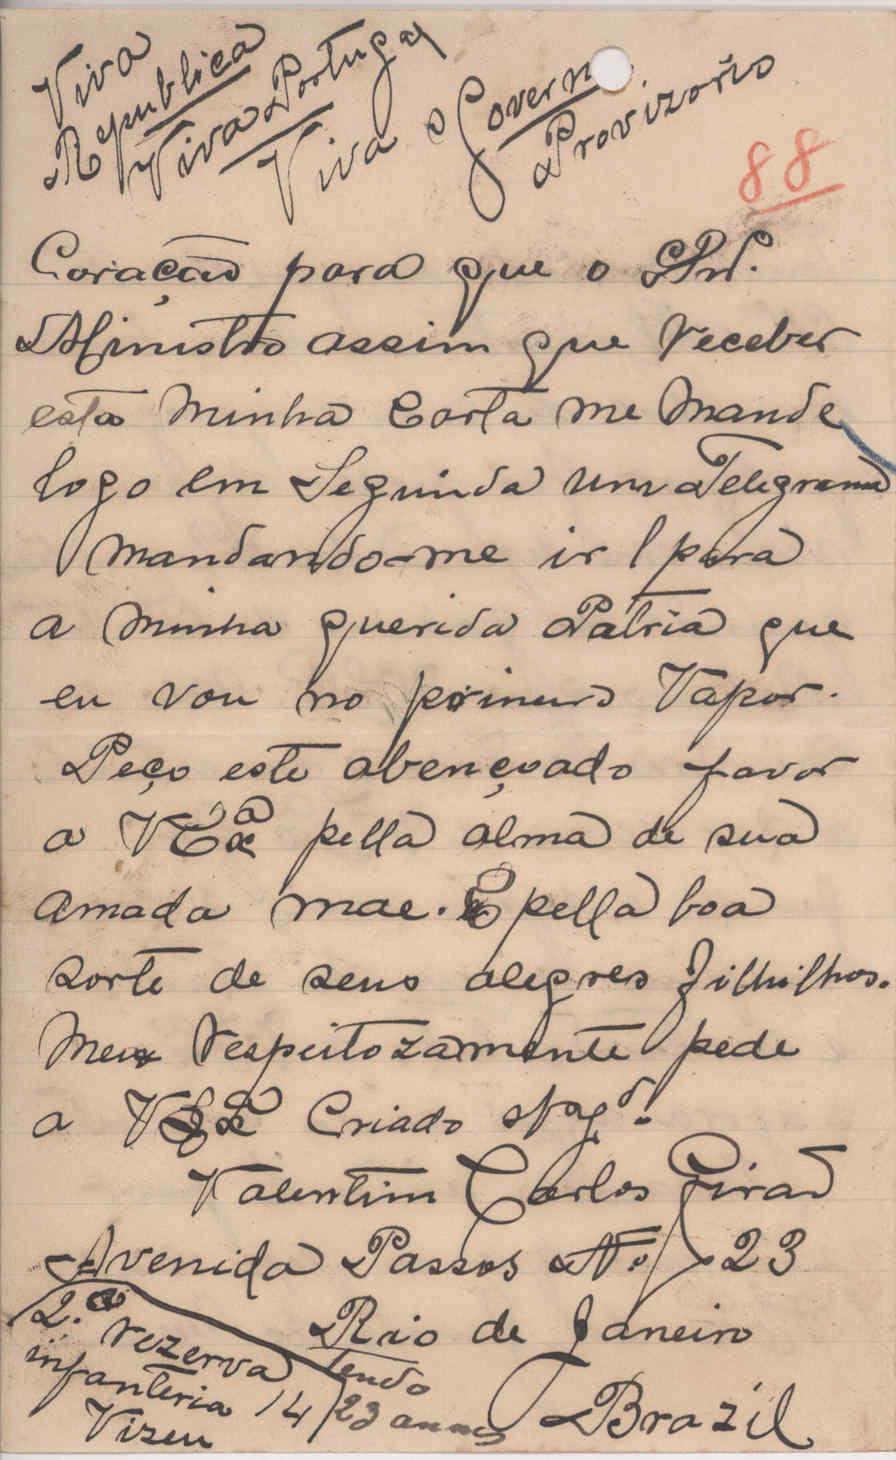 Viva
Republica
Viva Portugal
Viva o Governo
Provizorio
88
Coração para que o Snr.
Ministro assim que receber
esta minha Carta me mande
logo em Seguida um Telegrama
mandando-me ir para
a minha querida Patria que
eu vou no primeiro Vapor.
Peço este abençoado favor
a V Exª pella alma de sua
amada mae. E pella boa
sorte de seus alegres filhilhos.
Meu respeitozamente pede
a V Exª Criado
Valentim Carlos Girão
Avenida Passos Nº 23
Rio de Janeiro
Brazil
2.ª rezerva
infanteria 14
Vizeu
tendo
23 annos